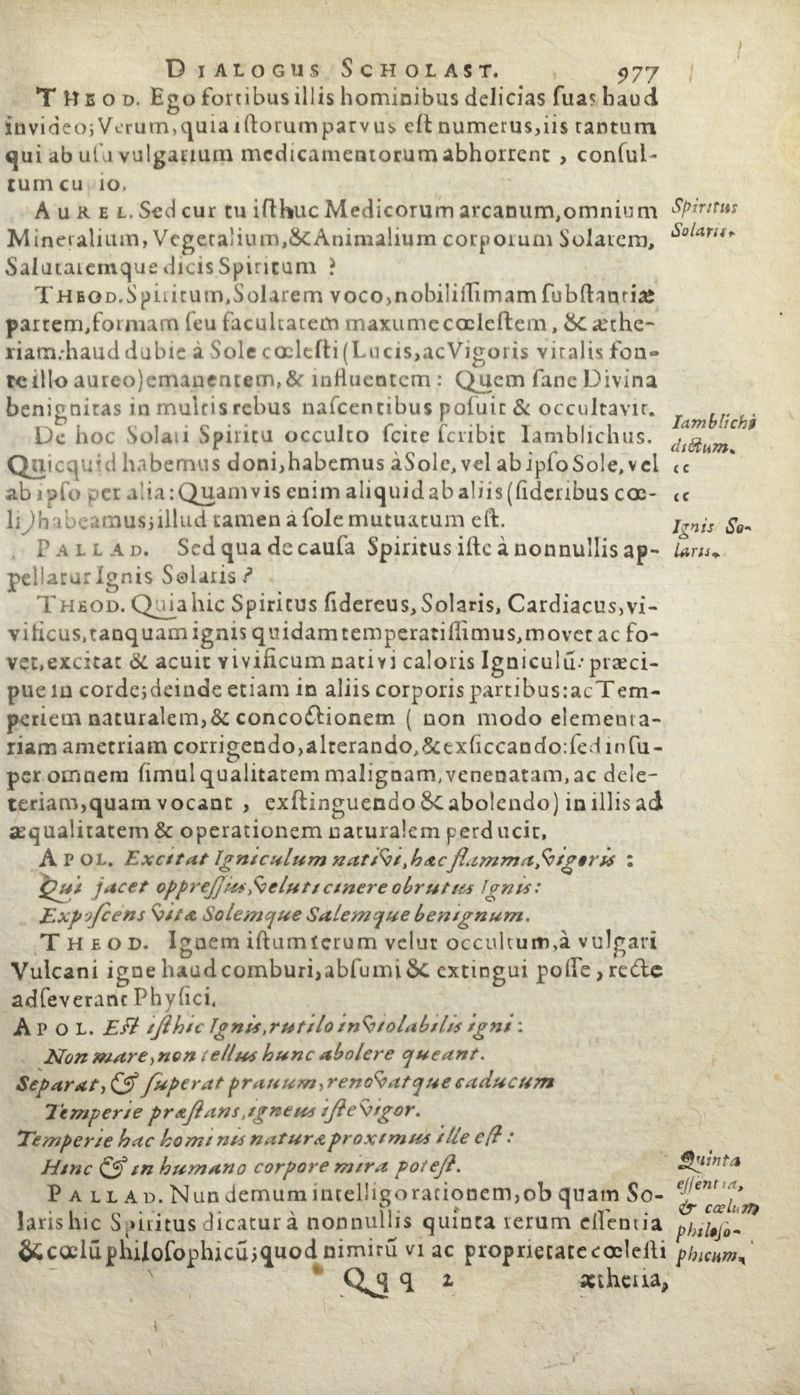 DIALOGUS SCHOLAST. 977
THEOD. Ego fortibus illis hominibus delicias ſuas haud
invideo; Verum, quia iſtorum parvus eſt numerus, iis tantum
qui ab uſu vulgarium medicamentorum abhorrent, conſul-
tum cu io.
AUREL. Sed cur tu iſthuc Medicorum arcanum, omnium
Spiritus
Mineralium, Vegetalium, & Animalium corporum Solarem,
Solaris.
Salutaremque dicis Spiritum ?
THEOD. Spiritum, Solarem voco, nobiliſſimam ſubſtantiæ
partem, formam ſeu facultatem maxume cœleſtem, & æthe-
riam: haud dubie à Sole cœleſti (Lucis, ac Vigoris vitalis fon-
te illo aureo) emanentem, & influentem : Quem ſane Divina
benignitas in multis rebus naſcentibus poſuit & occultavit.
De hoc Solari Spiritu occulto ſcite ſcribit Iamblichus.
Iamblichi
dictum.
Quicquid habemus doni, habemus à Sole, vel ab ipſo Sole, vel
“
ab ipſo per alia: Quamvis enim aliquid ab aliis (ſideribus cœ-
“
li) habeamus; illud tamen à ſole mutuatum eſt.
PALLAD. Sed qua de cauſa Spiritus iſte à nonnullis ap-
Ignis So-
laris.
pellatur Ignis Solaris ?
THEOD. Quia hic Spiritus ſidereus, Solaris, Cardiacus, vi-
vificus, tanquam ignis quidam temperatiſſimus, movet ac fo-
vet, excitat & acuit vivificum nativi caloris Igniculū: præci-
pue in corde; deinde etiam in aliis corporis partibus: ac Tem-
periem naturalem, & concoctionem ( non modo elementa-
riam ametriam corrigendo, alterando, & exſiccando: ſed inſu-
per omnem ſimul qualitatem malignam, venenatam, ac dele-
teriam, quam vocant , exſtinguendo & abolendo) in illis ad
æqualitatem & operationem naturalem perducit.
APOL. Excitat Igniculum nativi, hæc flamma, vigoris :
Qui jacet oppreſſus, veluti cinere obrutus Ignis:
Expoſcens vitæ Solemque Salemque benignum.
THEOD. Ignem iſtum iterum velut occultum, à vulgari
Vulcani igne haud comburi, abſumi & extingui poſſe, recte
adſeverant Phyſici.
APOL. Eſt iſthic Ignis, rutilo inviolabilis igni :
Non mare, non tellus hunc abolere queant.
Separat, & ſuperat prauum, renovatque caducum
Temperie præſtans, igneus iſte vigor.
Temperie hac hominis naturæ proximus ille eſt :
Hinc & in humano corpore mira poteſt.
PALLAD. Nun demum intelligo rationem, ob quam So-
Quinta
eſſentia,
laris hic Spiritus dicatur à nonnullis quinta rerum eſſentia
& cœlum
philoſo-
& cœlū philoſophicū; quod nimirū vi ac proprietate cœleſti
phicum.
Qqq 2 ætheria,